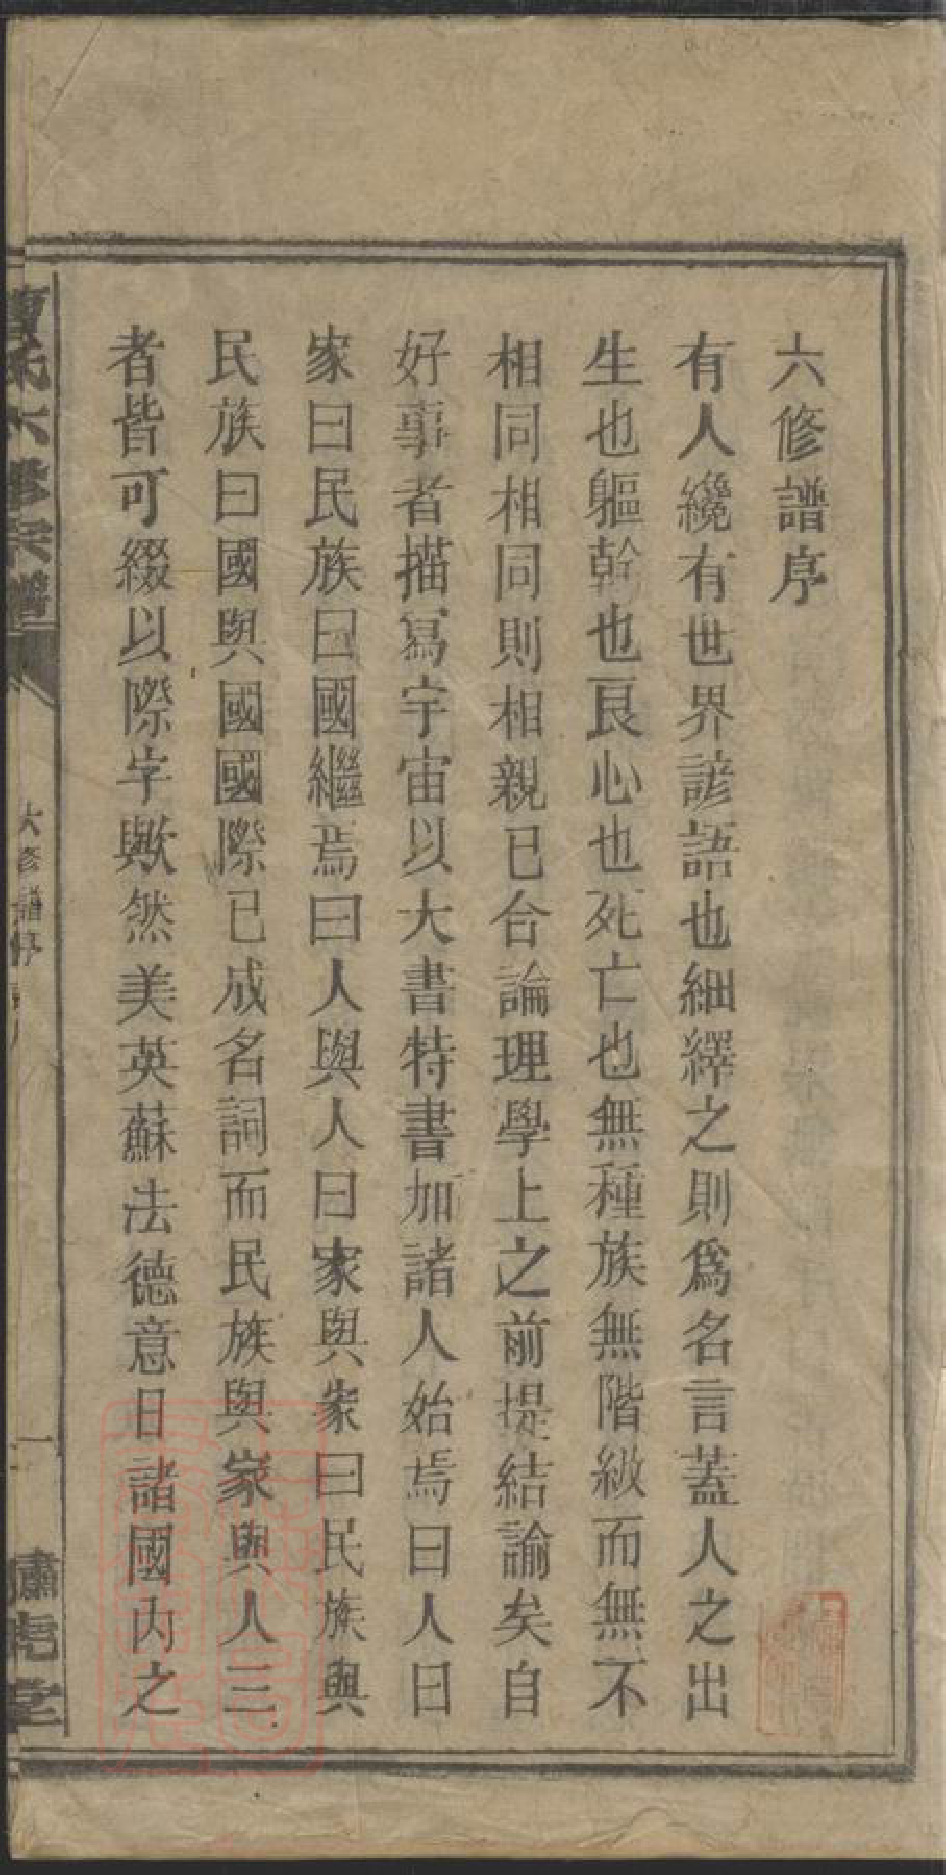 六修譜序
有人纔有世界諺語也細繹之則爲名言蓋人之出
生也軀幹也艮心也死亡也無種族無階級而無不
相同相同則相親已合論理學上之前提結論矣自
好事者描寫宇宙以大書特書加諸人始焉曰人曰
家曰民族曰國繼焉曰人與人曰家與家曰民族與
民族曰國與國國際已成名詞而民族與家與人三
者皆可綴以際字歟然美英蘇法德意日諸國內之
氏六修宗譜
六修譜序
一
嘯虎堂